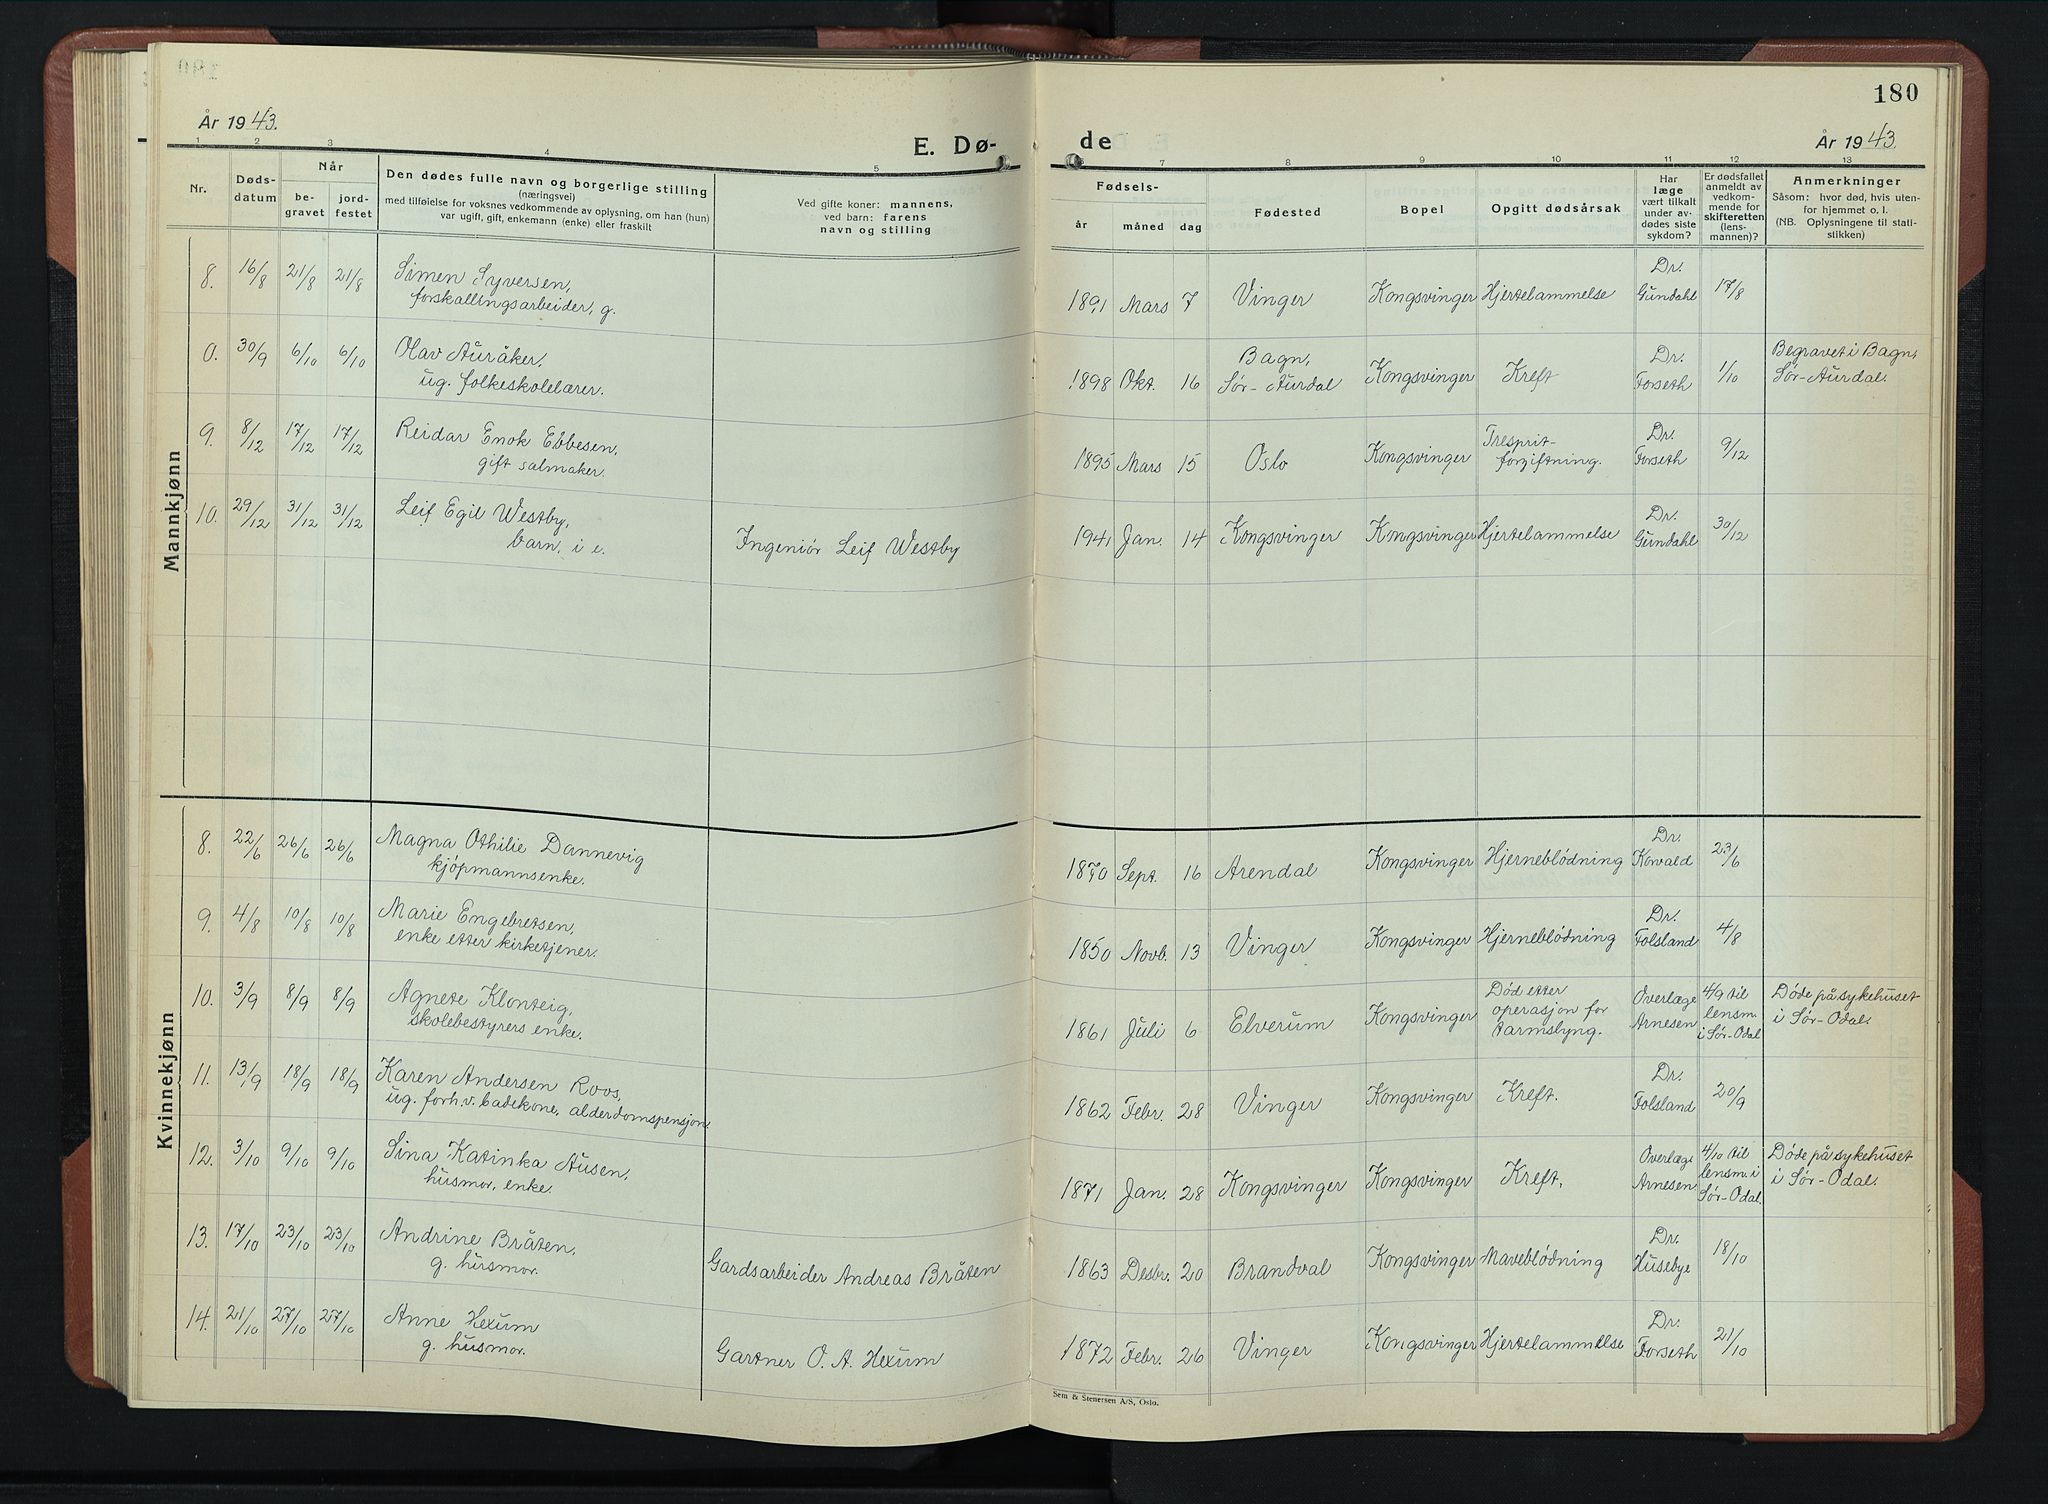 180
År 1943.
E. Dø-
de
År 1943.
1 2 3 4 5 7 8 9 10 11 12 13
Nr.
Døds-
datum
Når
be-
gravet
jord-
festet
Den dødes fulle navn og borgerlige stilling
(næringsvei)
med tilføielse for voksnes vedkommende av oplysning, om han (hun)
var ugift, gift, enkemann (enke) eller fraskilt
Ved gifte koner: mannens,
ved barn: farens
navn og stilling
Fødsels-
år måned dag
Fødested
Bopel
Opgitt dødsårsak
Har
læge
vært tilkalt
under av-
dødes siste
sykdom?
Er dødsfallet
anmeldt av
vedkom-
mende for
skifteretten
(lens-
mannen)?
Anmerkninger
Såsom: hvor død, hvis uten-
for hjemmet o. l.
(NB. Oplysningene til stati-
stikken)
Mannkjønn
8. 16/8 21/8 21/8 Simen Syversen,
forskallingsarbeider, g.
1891 Mars 7 Vinger Kongsvinger Hjertelammelse Dr.
Gundahl 17/8
0. 30/9 6/10 6/10 Olav Auråker,
ug. folkeskolelærer.
1898 Okt. 16 Bagn,
Sør-Aurdal Kongsvinger Kreft Dr.
Forseth 1/10 Begravet i Bagn,
Sør-Aurdal.
9. 8/12 17/12 17/12 Reidar Enok Ebbesen,
gift salmaker.
1895 Mars 15 Oslo Kongsvinger Tresprit-
forgiftning. Dr.
Forseth 9/12
10. 29/12 31/12 31/12 Leif Egil Westby,
barn, i e. Ingeniør Leif Westby
1941 Jan. 14 Kongsvinger Kongsvinger Hjertelammelse Dr.
Gundahl 30/12
Kvinnekjønn
8. 22/6 26/6 26/6 Magna Othilie Dannevig
kjøpmannsenke.
1870 Sept. 16 Arendal Kongsvinger Hjerneblødning Dr.
Kowald 23/6
9. 4/8 10/8 10/8 Marie Engebretsen,
enke etter kirketjener.
1850 Novb. 13 Vinger Kongsvinger Hjerneblødning Dr.
Folsland 4/8
10. 3/9 8/9 8/9 Agnete Klonteig,
skolebestyrers enke.
1861 Juli 6 Elverum Kongsvinger Død etter
operasjon for
tarmslyng. Overlæge
Arnesen 4/9 til
lensm.
i Sør-Odal Døde på sykehuset
i Sør-Odal.
11. 13/9 18/9 18/9 Karen Andersen Roos,
ug. forh.v. badekone, alderdomspensjon.
1862 Febr. 28 Vinger Kongsvinger Kreft. Dr.
Folsland 20/9
12. 3/10 9/10 9/10 Sina Katinka Ausen,
husmor, enke.
1871 Jan. 28 Kongsvinger Kongsvinger Kreft. Overlæge
Arnesen 4/10 til
lensm. i
Sør-Odal. Døde på sykehuset
i Sør-Odal.
13. 17/10 23/10 23/10 Andrine Bråten,
g. husmor. Gardsarbeider Andreas Bråten
1863 Desbr. 20 Brandval Kongsvinger Maveblødning Dr.
Husebye 18/10
14. 21/10 27/10 27/10 Anne Hexum
g. husmor. Gartner O. A. Hexum
1872 Febr. 26 Vinger Kongsvinger Hjertelammelse Dr.
Forseth 21/10
Sem & Stenersen A/S, Oslo.